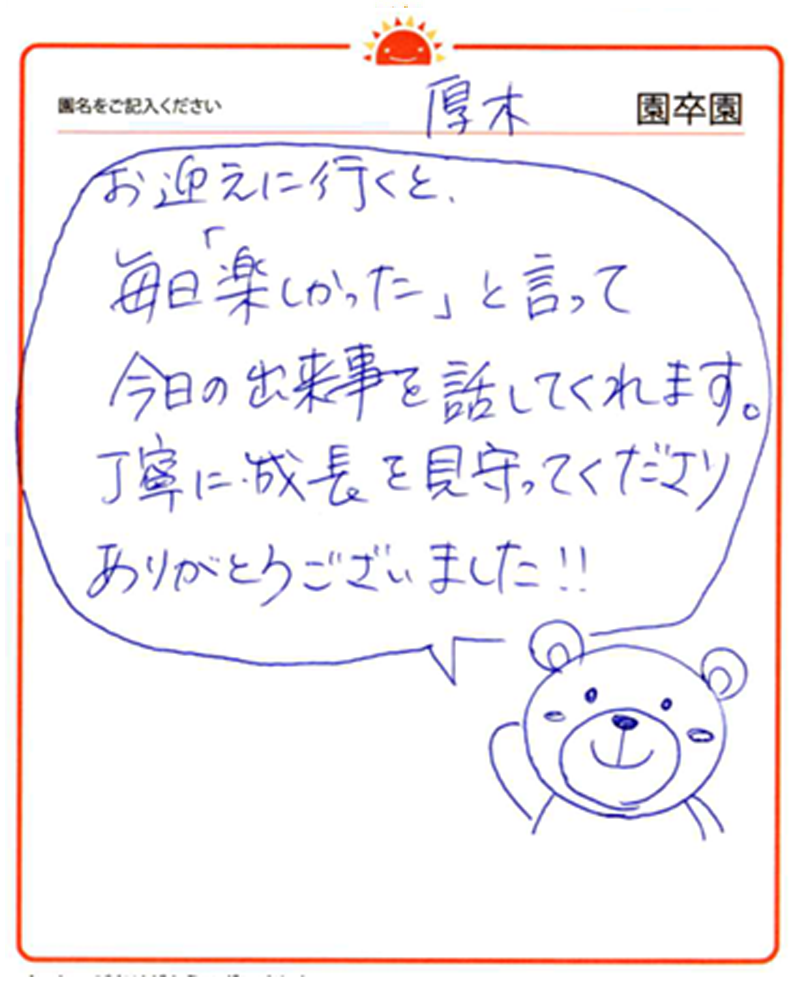 園名をご記入ください 厚木 園卒園
お迎えに行くと、
毎日「楽しかった」と言って
今日の出来事を話してくれます。
丁寧に成長を見守ってくださり
ありがとうございました!!